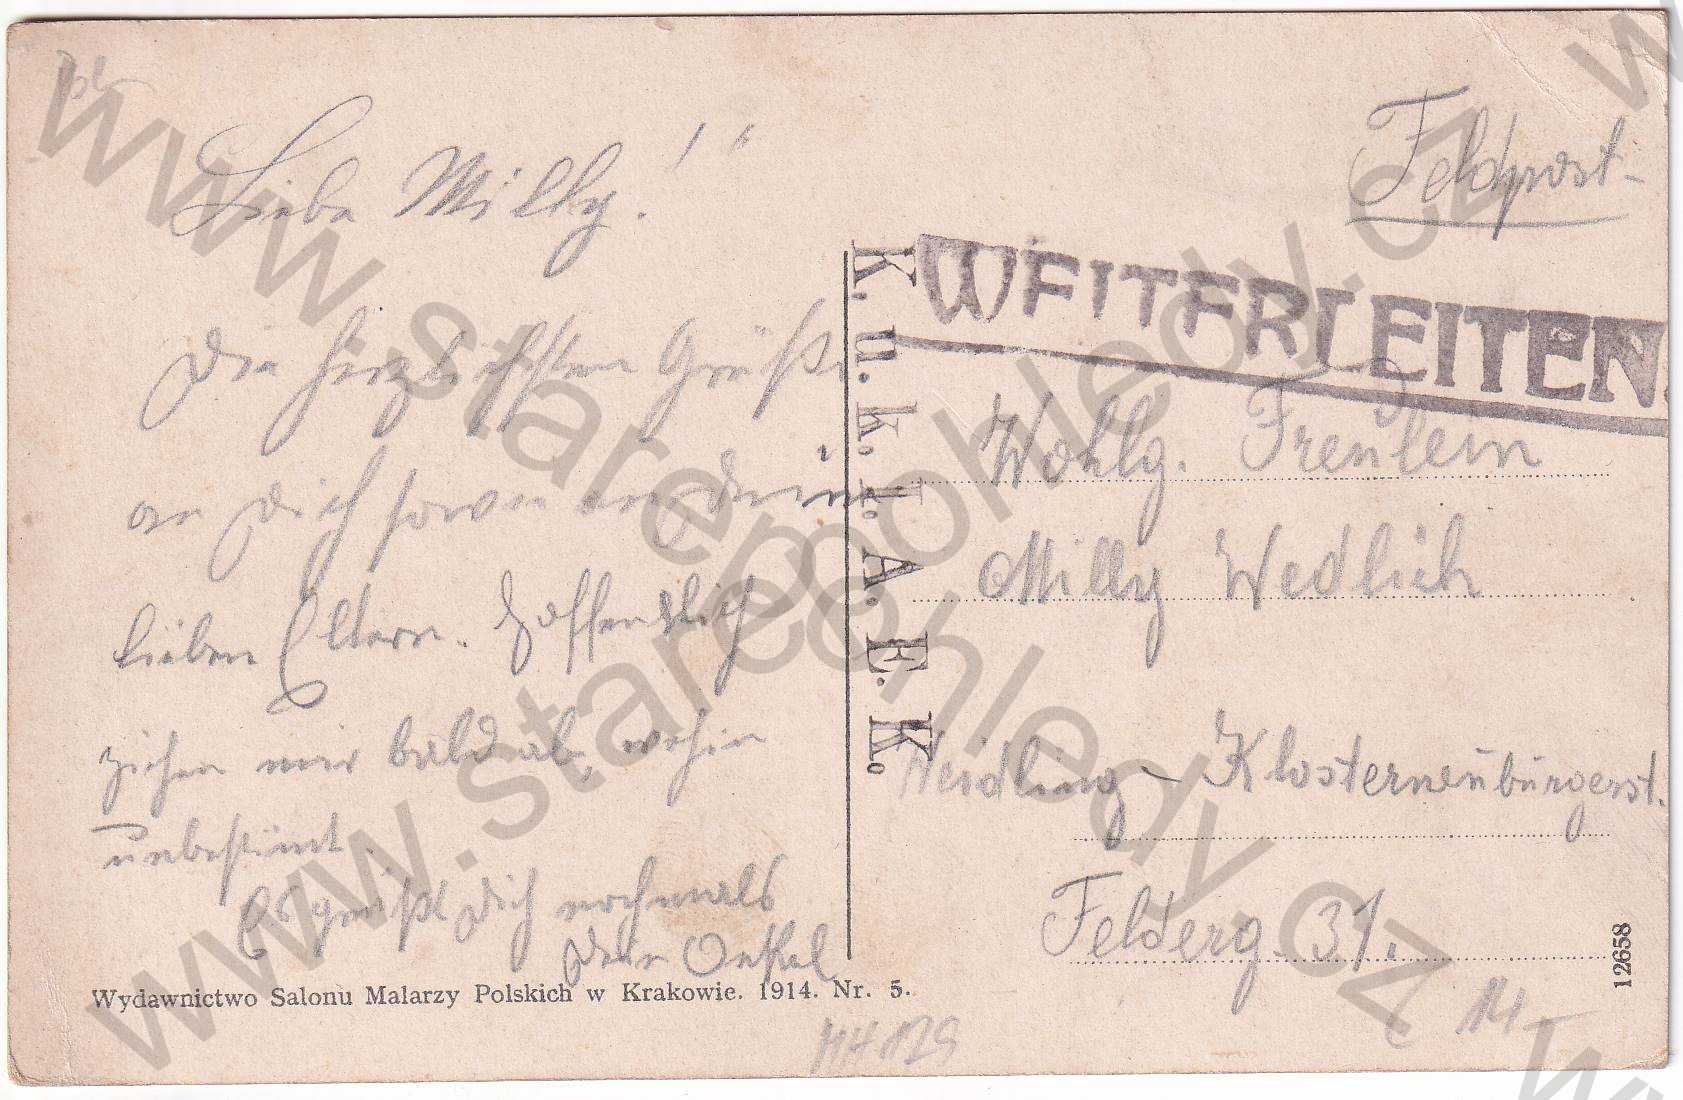 Liebe Milly!
Die herzlichsten Grüße
an Dich sowie an Deine
lieben Eltern. Hoffentlich
ziehen wir bald ab, wohin
unbestimt.
Es grüßt Dich nochmals
Dein Onkel
Wydawnictwo Salonu Malarzy Polskich w Krakowie. 1914. Nr. 5.
K.u.k.I.A.E.K.
Feldpost
WEITERLEITEN.
Wohlg. Freulein
Milly Wedlich
Weidling - Klosterneuburgerst.
Felderg. 31.
12658
14
www.starepohledy.cz
www.starepohledy.cz